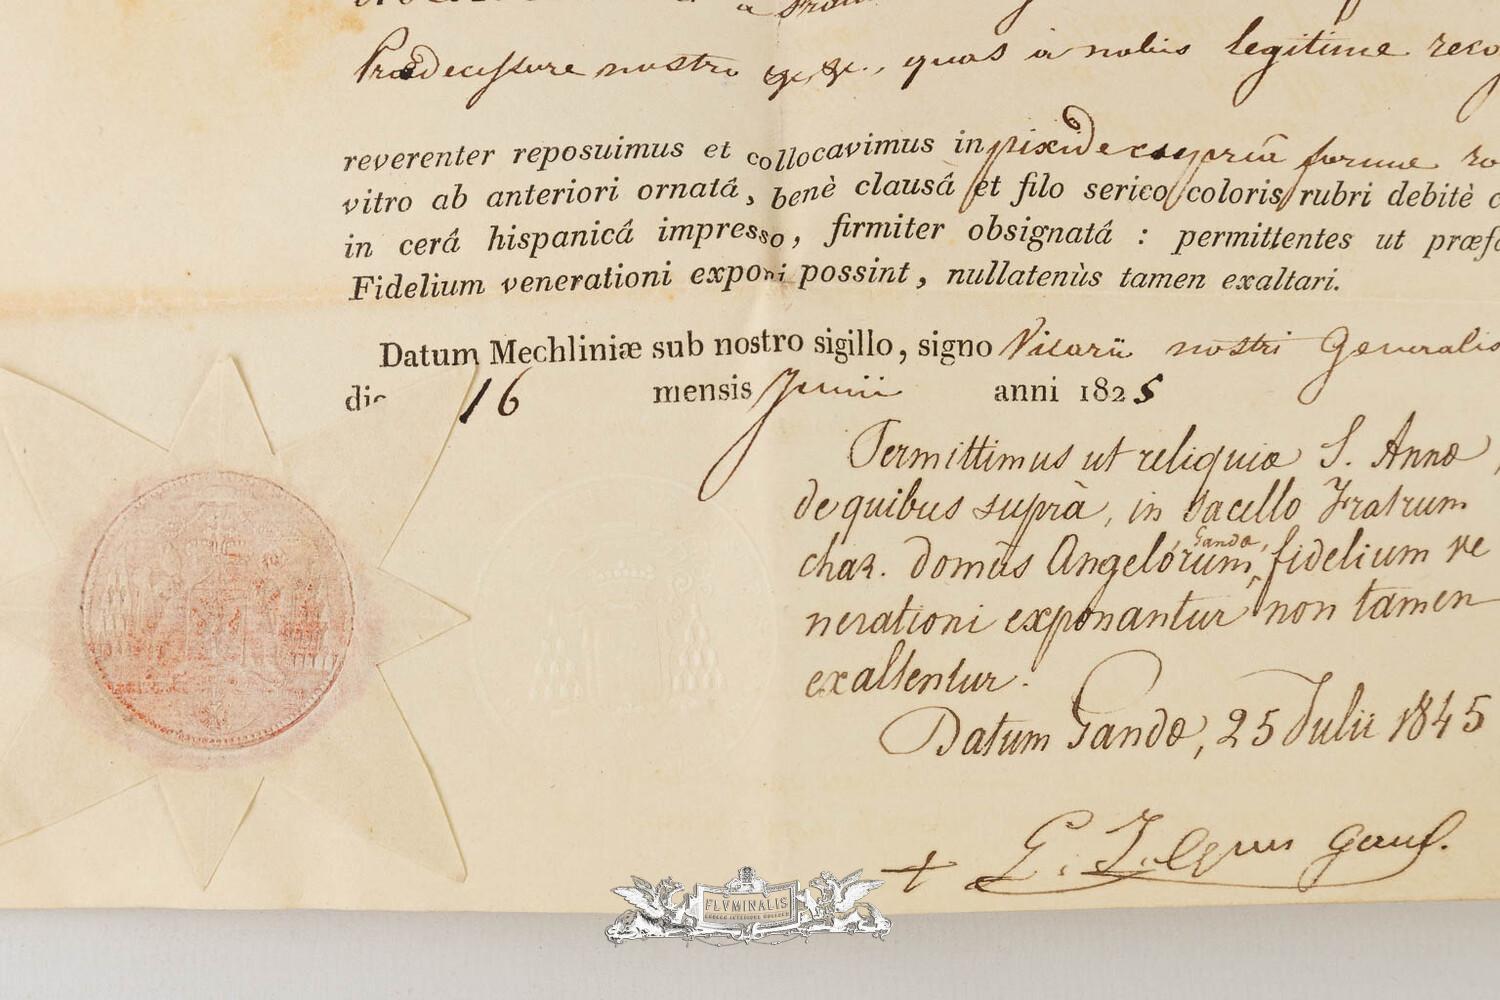 Prædecessore nostro &c, &c., quas a nobis legitime reco
reverenter reposuimus et collocavimus in pixide cupriâ formæ ro
vitro ab anteriori ornatâ, benè clausâ et filo serico coloris rubri debitè c
in cerâ hispanicâ impresso, firmiter obsignatâ : permittentes ut præfa
Fidelium venerationi exponi possint, nullatenùs tamen exaltari.
Datum Mechliniæ sub nostro sigillo, signo Vicarii nostri Generalis
die 16 mensis Junii anni 1825
Permittimus ut reliquiæ S. Annæ,
de quibus suprà, in sacello Fratrum
char. domûs Angelórum Gandæ, fidelium ve
nerationi exponantur non tamen
exaltentur.
Datum Gandæ, 25 Julii 1845
+
FLVMINALIS